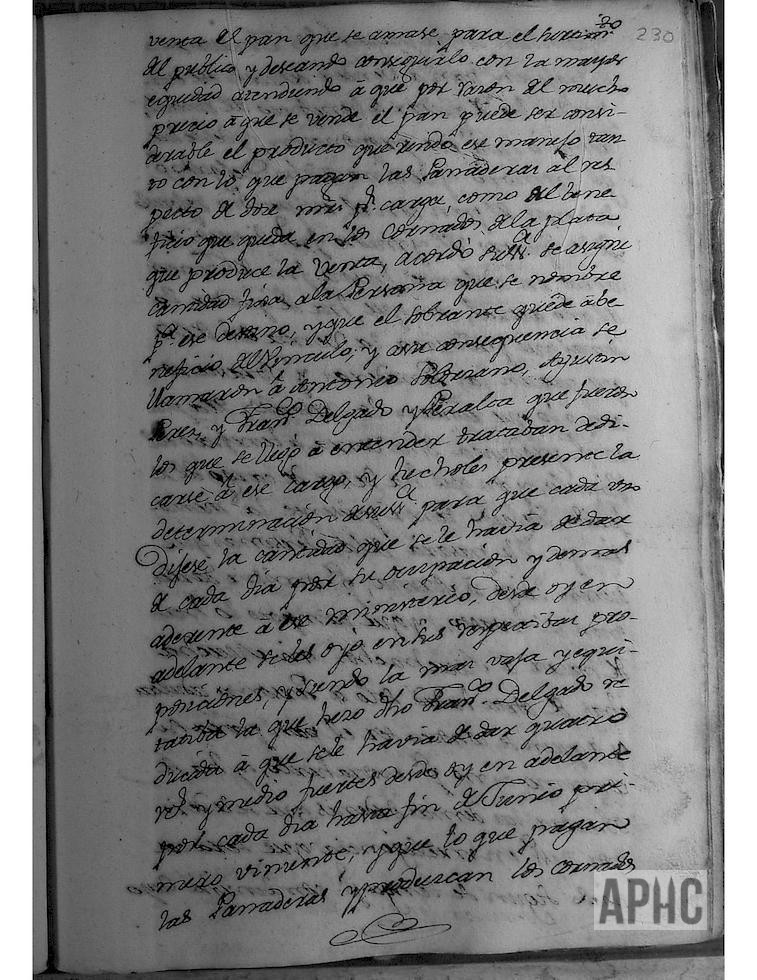 20
230
venta el pan que se amase para el surtim.to
del publico y deseando conseguirlo con la mayor
equidad atendiendo à que por razon del mucho
precio à que se vende el pan puede ser consi-
derable el producto que rinda ese manejo tan
to con lo que pagan las Panaderas al res
pecto de dos mrs p.r carga, como del bene
ficio que queda en los Cornados de la plata
que produce la Venta, acordó su Sª. se asigne
cantidad fixa ala Persona que se nombre
p.ª ese destino, y que el sobrante quede abe
neficio del Vinculo; y en consequencia se
llamaron à Antonio Solorzano, Agustin
Perez, y Fran.co Delgado y Peralta que fueron
los que se llegó à entender trataban dedi-
carse à ese cargo, y hecholes presente la
determinacion de su Sª para que cada uno
dijese la cantidad que se le havia de dar
de cada dia por su ocupacion y demas
aderente à ese ministerio, desde oy en
adelante se les oyó en sus respectibas pro-
posiciones, y siendo la mas vaja y equi-
tatiba la que hizo dho Fran.co Delgado re
ducida à que se le havia de dar quatro
r.s y medio fuertes desde oy en adelante
por cada dia hasta fin de Junio pri-
mero viniente, y que lo que pagan
las Panaderas y produzcan los Cornados
APHC